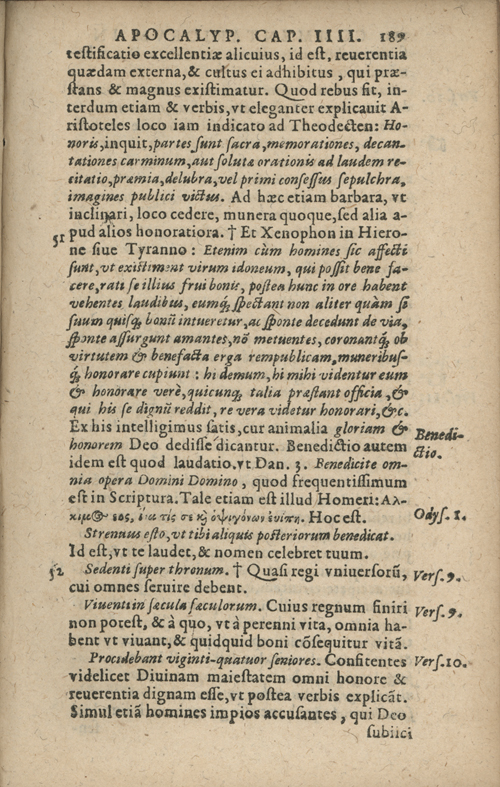 APOCALYP. CAP. IIII. 189
testificatio excellentiæ alicuius, id est, reuerentia
quædam externa, & cultus ei adhibitus, qui præ-
stans & magnus existimatur. Quod rebus fit, in-
terdum etiam & verbis, vt eleganter explicauit A-
ristoteles loco iam indicato ad Theodecten: Ho-
noris, inquit, partes sunt sacra, memorationes, decan-
tationes carminum, aut solutæ orationis ad laudem re-
citatio, præmia, delubra, vel primi consessus sepulchra,
imagines publici victus. Ad hæc etiam barbara, vt
inclinari, loco cedere, munera quoque, sed alia a-
pud alios honoratiora. † Et Xenophon in Hiero-
51
ne siue Tyranno: Etenim cùm homines sic affecti
sunt, vt existiment virum idoneum, qui possit bene fa-
cere, rati se illius frui bonis, postea hunc in ore habent
vehentes laudibus, eumq́; spectant non aliter quàm si
suum quisq; bonũ intueretur, ac sponte decedunt de via,
sponte assurgunt amantes, nõ metuentes, coronantq́; ob
virtutem & benefacta erga rempublicam, muneribus-
q́; honorare cupiunt: hi demum, hi mihi videntur eum
& honorare verè, quicunq; talia præstant officia, &
qui his se dignũ reddit, re vera videtur honorari, &c.
Ex his intelligimus satis, cur animalia gloriam &
honorem Deo dedisse dicantur. Benedictio autem
Benedi-
ctio.
idem est quod laudatio. vt Dan. 3. Benedicite om-
nia opera Domini Domino, quod frequentissimum
est in Scriptura. Tale etiam est illud Homeri: Αλ-
κιμος εος, ἵνα τίς σε ϗ ὀψιγόνων ἐυείπη. Hoc est.
Odys. 1.
Strenuus esto, vt tibi aliquis posteriorum benedicat.
Id est, vt te laudet, & nomen celebret tuum.
52
Sedenti super thronum. † Quasi regi vniuersorũ,
Vers. 9.
cui omnes seruire debent.
Viuenti in sæcula sæculorum. Cuius regnum finiri
Vers. 9.
non potest, & à quo, vt à perenni vita, omnia ha-
bent vt viuant, & quidquid boni cõsequitur vitã.
Procidebant viginti-quatuor seniores. Confitentes
Vers. 10.
videlicet Diuinam maiestatem omni honore &
reuerentia dignam esse, vt postea verbis explicãt.
Simul etiã homines impios accusantes, qui Deo
subiici